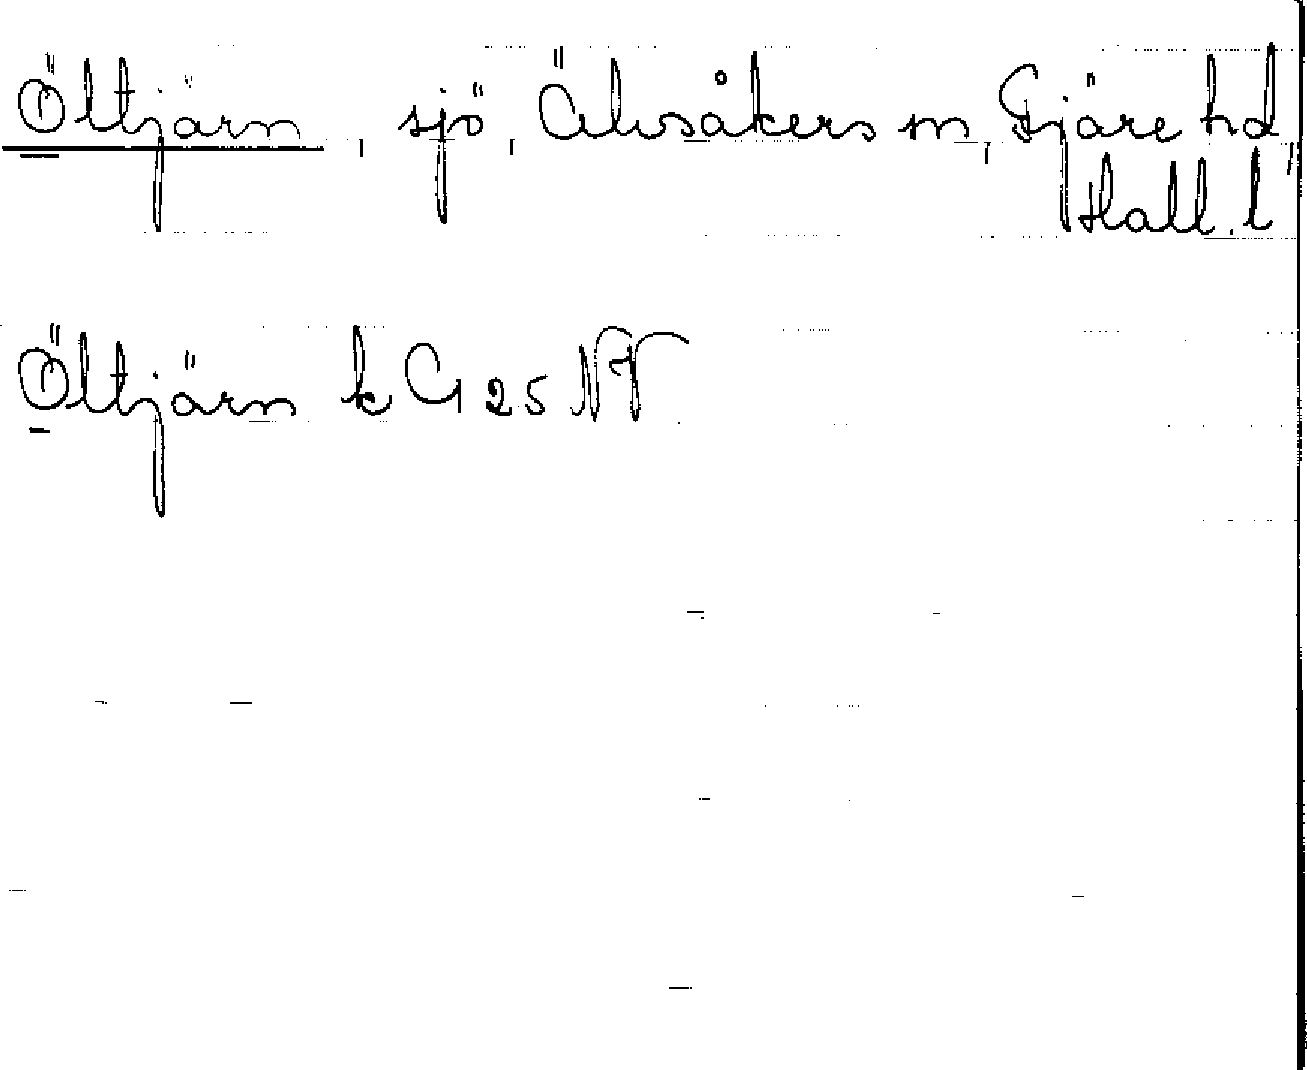 Öltjärn, sjö, Älvsåkers sn, Fjäre hd,
Hall. l
Öltjärn k G 25 NV